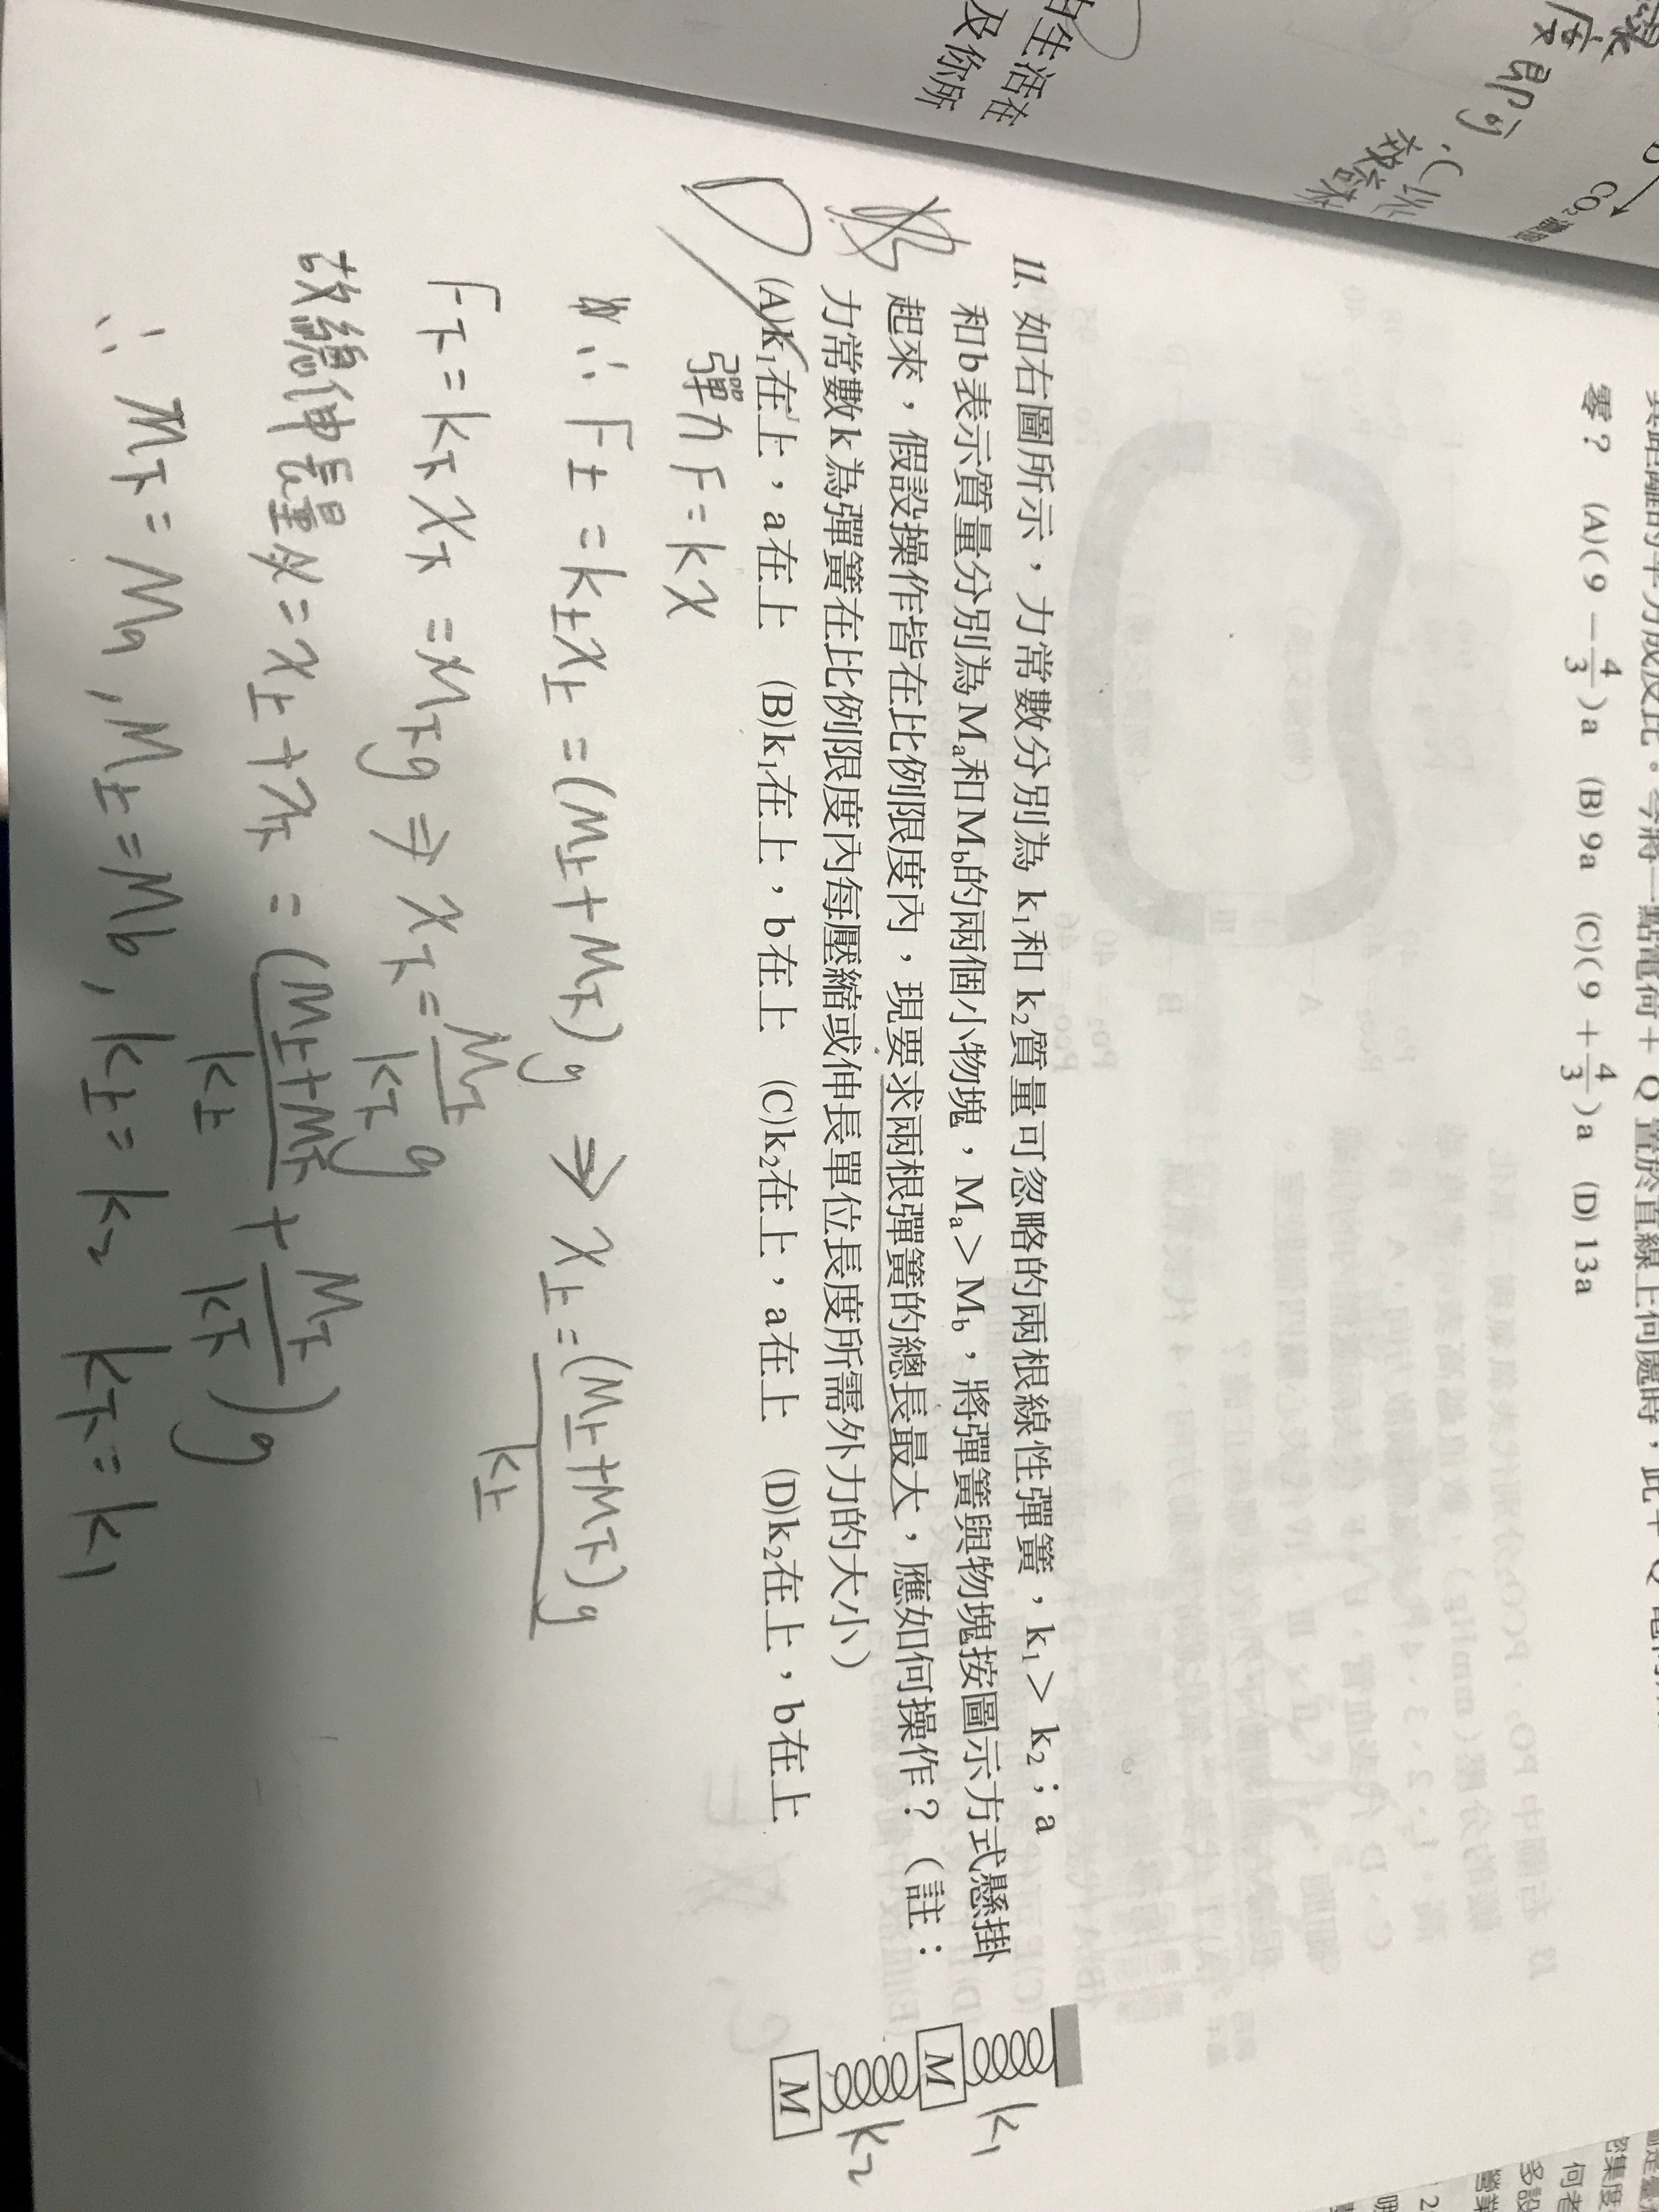 零？ (A)(9 − 4/3)a (B) 9a (C)(9 + 4/3)a (D) 13a
11. 如右圖所示，力常數分別為 k₁和 k₂質量可忽略的兩根線性彈簧，k₁＞k₂；a
和b表示質量分別為Mₐ和M_b的兩個小物塊，Mₐ＞M_b，將彈簧與物塊按圖示方式懸掛
起來，假設操作皆在比例限度內，現要求兩根彈簧的總長最大，應如何操作？（註：
力常數k為彈簧在比例限度內每壓縮或伸長單位長度所需外力的大小）
(A)k₁在上，a在上 (B)k₁在上，b在上 (C)k₂在上，a在上 (D)k₂在上，b在上
k₁
M
k₂
M
D
彈力F=kx
∵ F上=k上x上=(M上+M下)g ⇒ x上=(M上+M下)g/k上
F下=k下x下=M下g ⇒ x下=M下/k下 g
故總伸長量x=x上+x下=(M上+M下/k上 + M下/k下)g
∴ M下=Ma, M上=Mb, k上=k₂ k下=k₁
由生活在
及你所
度即可
CO₂濃度